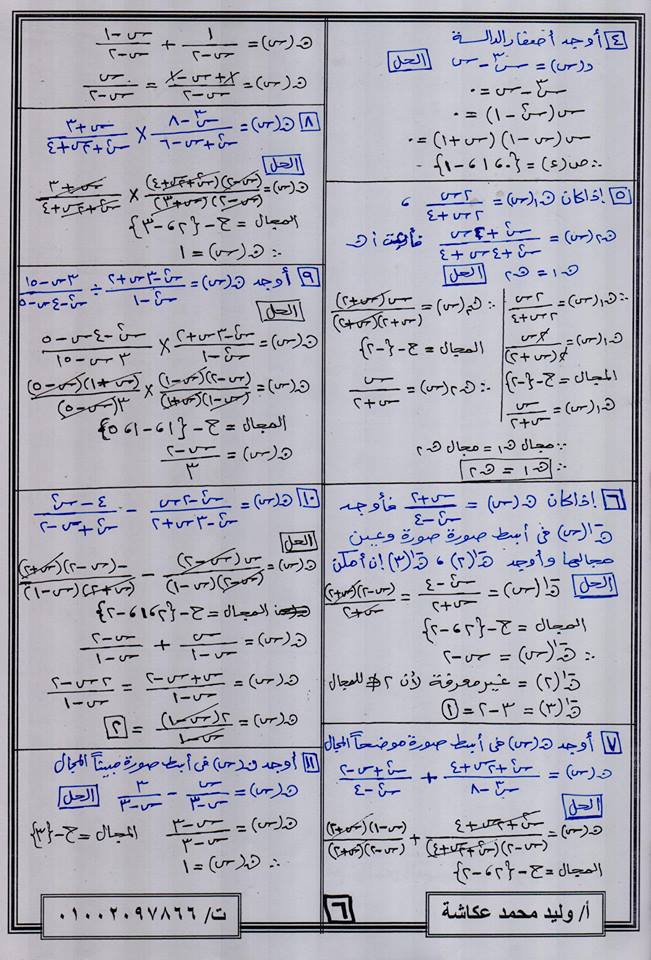 ٤ أوجد أصفار الدالة
د(س) = س٣ - س
الحل
س٣ - س = ٠
س(س٢ - ١) = ٠
س(س - ١)(س + ١) = ٠
∴ ص(د) = {٠، ١، -١}
٥ إذا كان ن١(س) = ٢س / (٢س + ٤) ،
ن٢(س) = (س٢ + ٢س) / (س٢ + ٤س + ٤) فأثبت أن
ن١ = ن٢ الحل
∴ ن١(س) = ٢س / (٢س + ٤)
ن١(س) = ٢س / ٢(س + ٢)
المجال = ح - {-٢}
ن١(س) = س / (س + ٢)
∴ ن٢(س) = س(س + ٢) / (س + ٢)(س + ٢)
المجال = ح - {-٢}
∴ ن٢(س) = س / (س + ٢)
∵ مجال ن١ = مجال ن٢
∴ ن١ = ن٢
٦ إذا كان ن(س) = (س + ٢) / (س٢ - ٤) فأوجد
ن-١(س) فى أبسط صورة صورة وعين
مجالها وأوجد ن-١(٢) ، ن-١(٣) إن أمكن
الحل ن-١(س) = (س٢ - ٤) / (س + ٢) = (س - ٢)(س + ٢) / (س + ٢)
المجال = ح - {٢، -٢}
∴ ن-١(س) = س - ٢
ن-١(٢) = غير معرفة لأن ٢ ∉ للمجال
ن-١(٣) = ٣ - ٢ = ١
٧ أوجد ن(س) فى أبسط صورة موضحاً المجال
ن(س) = (س٢ + ٢س + ٤) / (س٣ - ٨) + (س٢ + س - ٢) / (س٢ - ٤)
الحل
ن(س) = (س٢ + ٢س + ٤) / (س - ٢)(س٢ + ٢س + ٤) + (س - ١)(س + ٢) / (س - ٢)(س + ٢)
المجال = ح - {٢، -٢}
ن(س) = ١ / (س - ٢) + (س - ١) / (س - ٢)
ن(س) = (١ + س - ١) / (س - ٢) = س / (س - ٢)
٨ ن(س) = (س٣ - ٨) / (س٢ + س - ٦) × (س + ٣) / (س٢ + ٢س + ٤)
الحل
ن(س) = (س - ٢)(س٢ + ٢س + ٤) / (س - ٢)(س + ٣) × (س + ٣) / (س٢ + ٢س + ٤)
المجال = ح - {٢، -٣}
∴ ن(س) = ١
٩ أوجد ن(س) = (س٢ - ٣س + ٢) / (س٢ - ١) ÷ (٣س - ١٥) / (س٢ - ٤س - ٥)
الحل
ن(س) = (س٢ - ٣س + ٢) / (س٢ - ١) × (س٢ - ٤س - ٥) / (٣س - ١٥)
ن(س) = (س - ٢)(س - ١) / (س - ١)(س + ١) × (س + ١)(س - ٥) / ٣(س - ٥)
المجال = ح - {١، -١، ٥}
ن(س) = (س - ٢) / ٣
١٠ ن(س) = (س٢ - ٢س) / (س٢ - ٣س + ٢) - (٤ - س٢) / (س٢ + س - ٢)
الحل
ن(س) = س(س - ٢) / (س - ٢)(س - ١) - -(س - ٢)(س + ٢) / (س + ٢)(س - ١)
المجال = ح - {٢، ١، -٢}
ن(س) = س / (س - ١) + (س - ٢) / (س - ١)
ن(س) = (س + س - ٢) / (س - ١) = (٢س - ٢) / (س - ١)
ن(س) = ٢(س - ١) / (س - ١) = ٢
١١ أوجد ن(س) فى أبسط صورة مبيناً المجال
ن(س) = س / (س - ٣) - ٣ / (س - ٣) الحل
ن(س) = (س - ٣) / (س - ٣) المجال = ح - {٣}
∴ ن(س) = ١
أ/ وليد محمد عكاشة
٦
ت/ ٠١٠٠٢٠٩٧٨٦٦